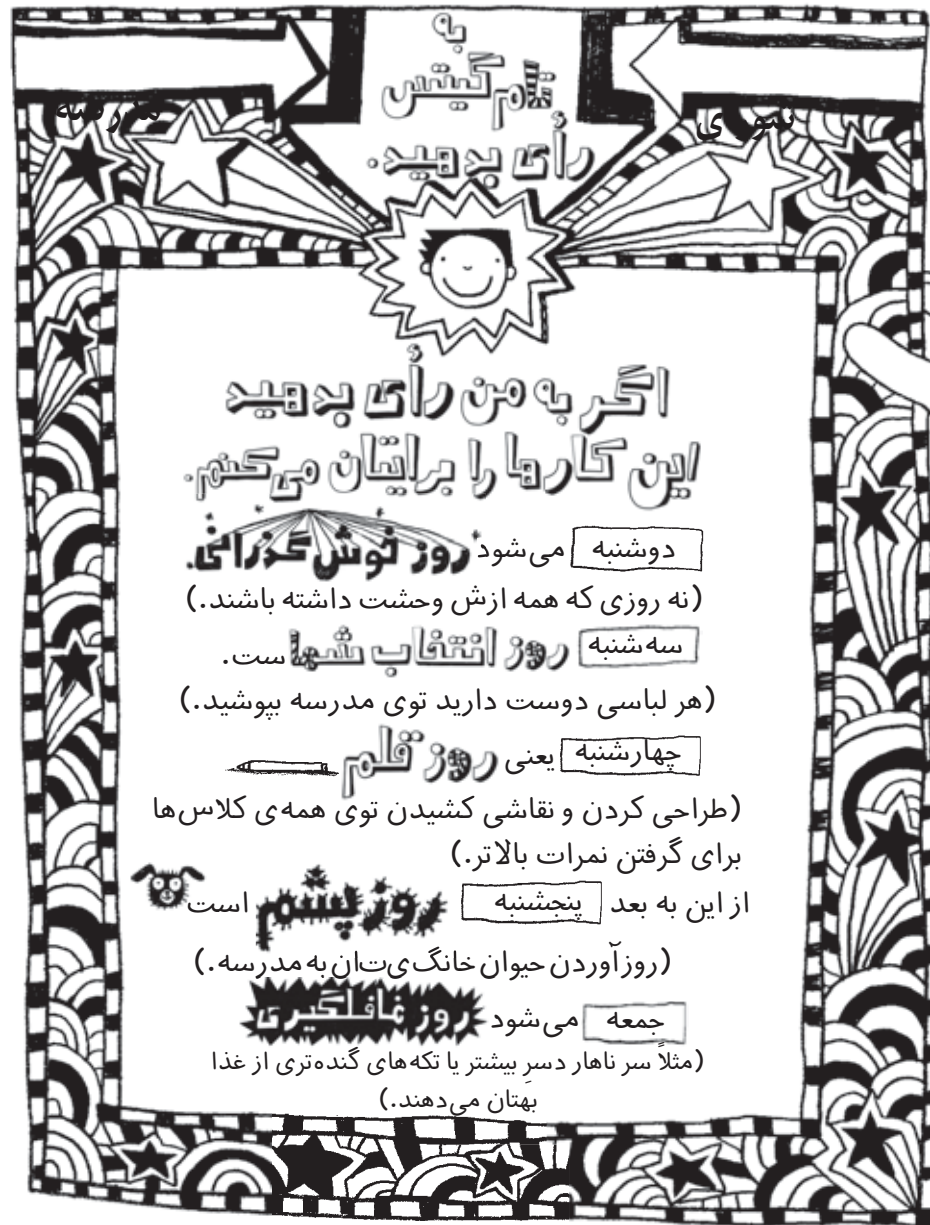 به
تام گیتس
رأی بدهید.
شورای
مدرسه
اگر به من رأی بدهید
این کارها را برایتان می‌کنم.
دوشنبه می‌شود روز خوش‌گذرانی.
(نه روزی که همه ازش وحشت داشته باشند.)
سه‌شنبه روز انتخاب شماست.
(هر لباسی دوست دارید توی مدرسه بپوشید.)
چهارشنبه یعنی روز قلم
(طراحی کردن و نقاشی کشیدن توی همه‌ی کلاس‌ها
برای گرفتن نمرات بالاتر.)
از این به بعد پنجشنبه روز پشم است
(روز آوردن حیوان خانگی‌تان به مدرسه.)
جمعه می‌شود روز غافلگیری
(مثلاً سر ناهار دسرِ بیشتر یا تکه‌های گنده‌تری از غذا
بهتان می‌دهند.)